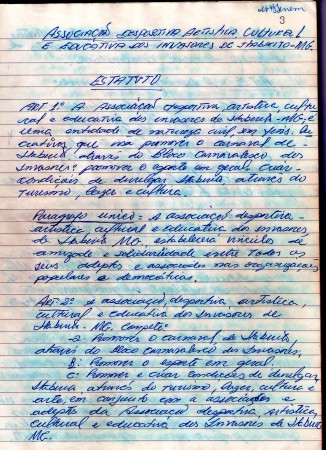 3
ASSOCIAÇÃO DESPORTIVA ARTISTICA CULTURAL
E EDUCATIVA DOS INVASORES DE ITABIRITO-MG.
ESTATUTO
ART 1º A Associação desportiva artistica cultu
ral e educativa dos invasores de Itabirito-MG, é
uma entidade de natureza civil, sem fins lu
crativos que visa promover o carnaval de
através do Bloco Carnavalesco dos
Invasores: promover o esporte em geral: criar
condições de divulgar através do
turismo, lazer e cultura.
Paragrafo unico = A associação desportiva
artistica cultural e educativa dos invasores
de MG, estabelecerá núcleos de
amizade e solidariedade entre todos os
seus adeptos e associados nas organizações
populares e democráticas.
Art-2º a associação desportiva artistica,
cultural e educativa dos Invasores de
- MG. compete
a- Promover o carnaval, de
através do Bloco carnavalesco dos Invasores,
B: Promover o esporte em geral.
C: Promover e criar condições de divulgar,
através do turismo, lazer, cultura e
arte em conjunto com a associações e
adeptos da Associação desportiva, artistica,
cultural e educativa dos Invasores de
MG.